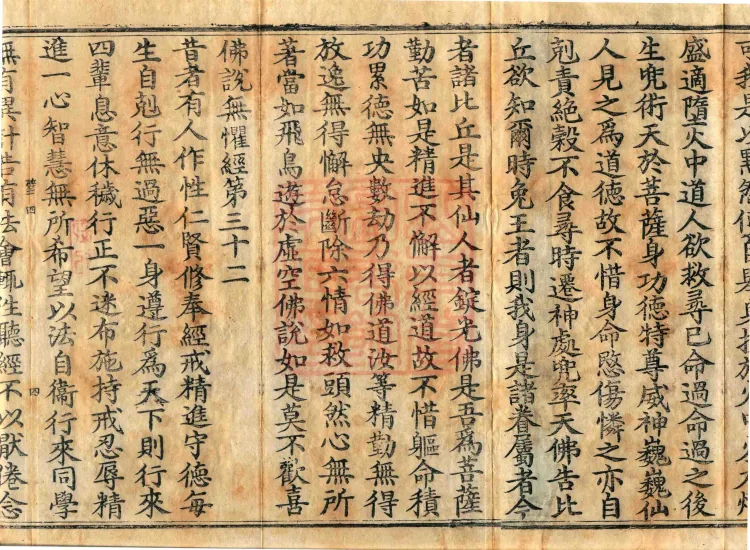 盛適墮火中道人欲救尋已命過命過之後
生兜術天於菩薩身功德特尊威神巍巍仙
人見之為道德故不惜身命愍傷憐之亦自
剋責絶穀不食尋時遷神處兜率天佛告比
丘欲知爾時兔王者則我身是諸眷屬者今
者諸比丘是其仙人者錠光佛是吾為菩薩
勤苦如是精進不懈以經道故不惜軀命積
功累德無央數劫乃得佛道汝等精勤無得
放逸無得懈怠斷除六情如救頭然心無所
著當如飛鳥遊於虛空佛說如是莫不歡喜
佛說無懼經第三十二
昔者有人作性仁賢修奉經戒精進守德每
生自剋行無過惡一身遵行為天下則行來
四輩息意休穢行正不迷布施持戒忍辱精
進一心智慧無所希望以法自衛行來同學
無有異計告有法會輒往聽經不以厭倦念